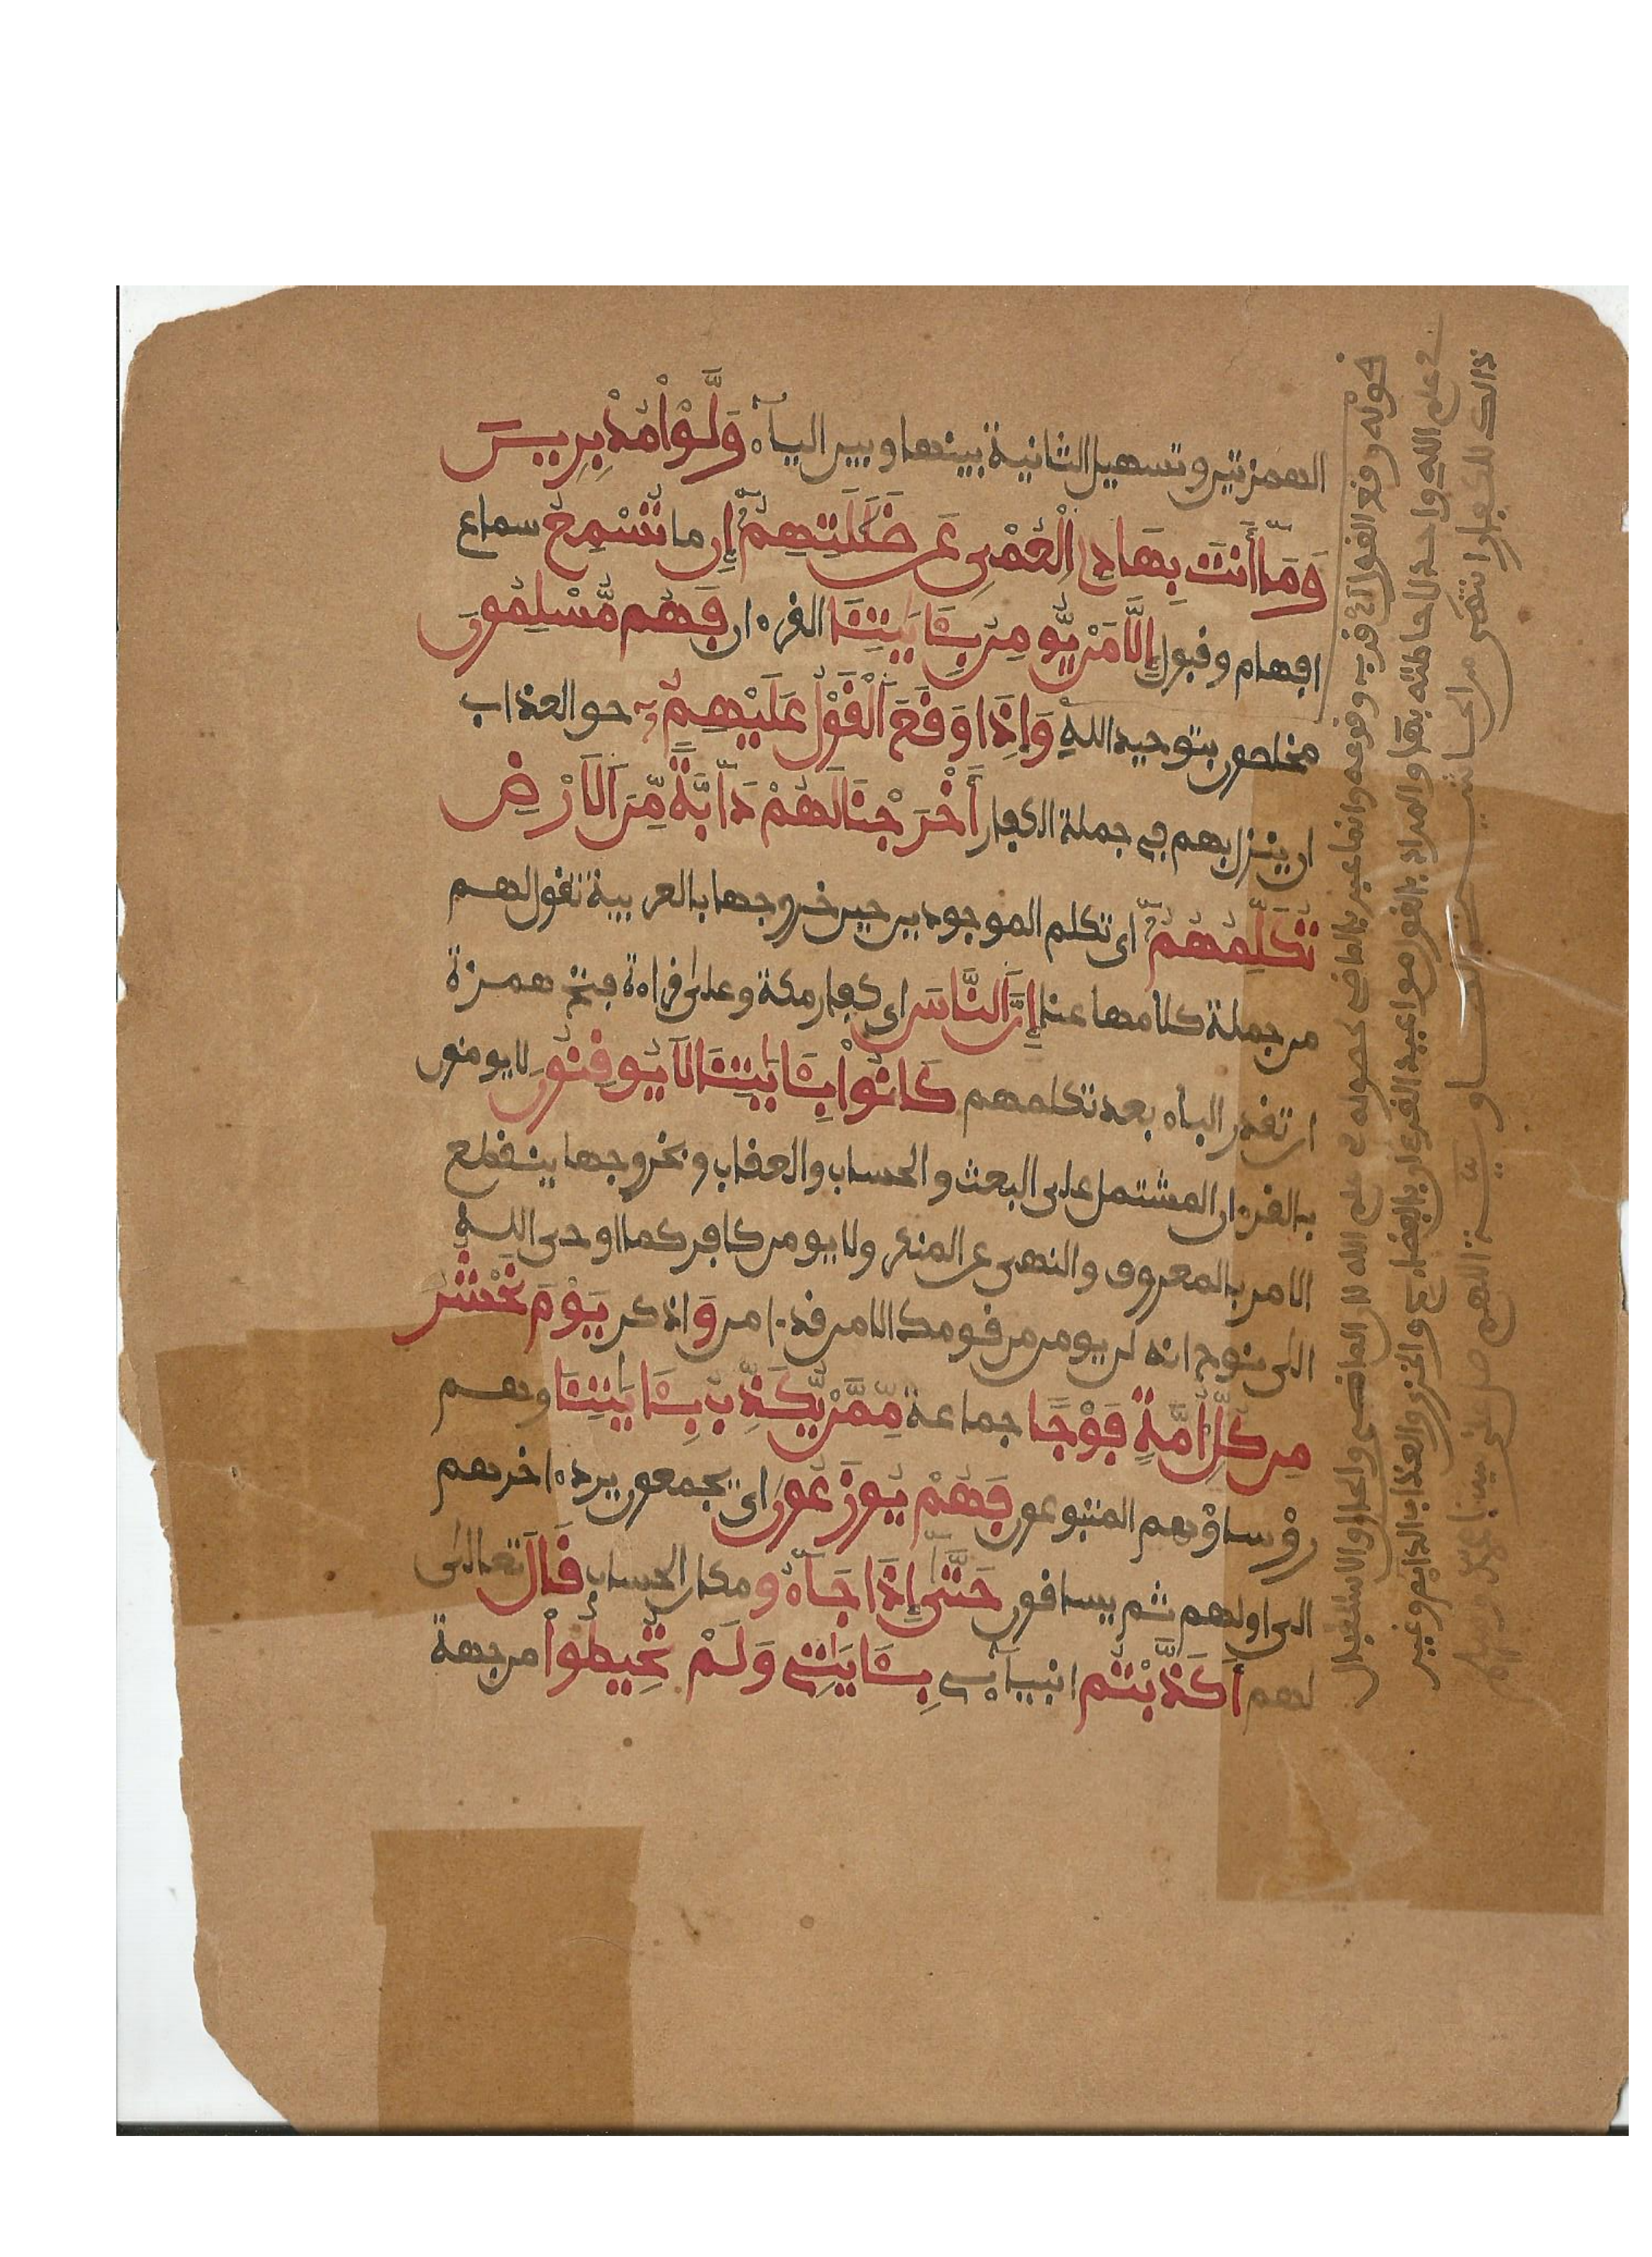 الهمزتين وتسهيل الثانية بينها وبين اليآء وَلَّوْا مُدْبِرِينَ
وَمَآ أَنتَ بِهَادِ الْعُمْىِ عَن ضَلَلَتِهِمْ إِن ما تُسْمِعُ سماع
افهام وقبول إِلَّا مَنْ يُّومِنُ بِـَٔايَتِنَا القرءان فَهُم مُّسْلِمُونَ
مخلصون بتوحيد الله وَإِذَا وَقَعَ الْقَوْلُ عَلَيْهِمْ حق العذاب
ان ينزل بهم في جملة الكفار أَخْرَجْنَا لَهُمْ دَآبَّةً مِّنَ الَارْضِ
تُكَلِّمُهُمْ اى تكلم الموجودين حين خروجها بالعربية تقول لهم
من جملة كلامها عنا إِنَّ النَّاسَ اى كفار مكة وعلى قراءة فتح همزة
ان تقدر الباء بعد تكلمهم كَانُوا بِـَٔايَتِنَا لَا يُوقِنُونَ لا يومنون
بالقرءان المشتمل على البعث والحساب والعقاب وبخروجها ينقطع
الامر بالمعروف والنهى عن المنكر ولا يومن كافر كما اوحى الله
الى نوح انه لن يومن من قومك الا من قد ءامن وَاذكر يَوْمَ نَحْشُرُ
مِن كُلِّ أُمَّةٍ فَوْجًا جماعة مِّمَّنْ يُّكَذِّبُ بِـَٔايَتِنَا وهم
رؤساؤهم المتبوعون فَهُمْ يُوزَعُونَ اى يجمعون يرد ءاخرهم
الى اولهم ثم يساقون حَتَّى إِذَا جَآءُو مكان الحساب قَالَ تعالى
لهم أَكَذَّبْتُم انبيآءى بِـَٔايَتِى وَلَمْ تُحِيطُوا من جهة
قوله وقع القول أى قرب وقوعه وانما عبر بالماضى لحصوله فى علم الله لان الماضى والحال والاستقبال
فى علم الله واحد لاحاطته بها والمراد بالقول مواعيد القرءان بالفضايح والخزى والعذاب الدايم وغير
ذالك للكفار انتهى من الحاشية الصاوية اللهم صل على نبينا محمد وسلم